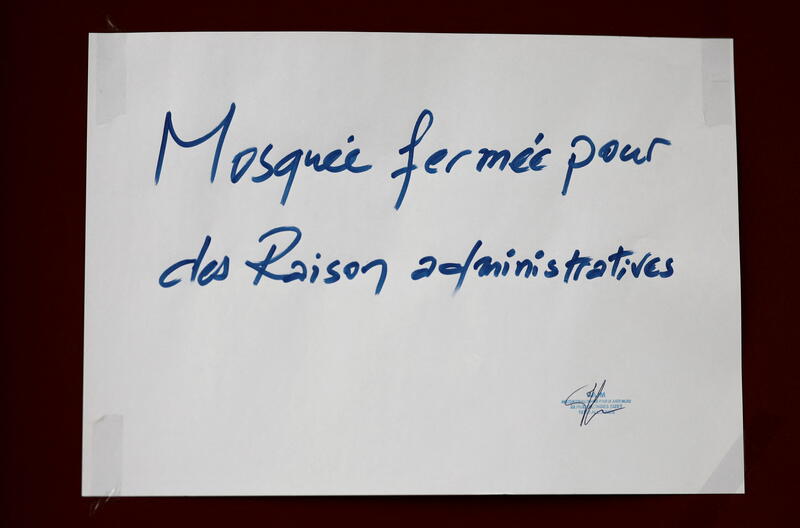 Mosquée fermée pour
des Raison administratives